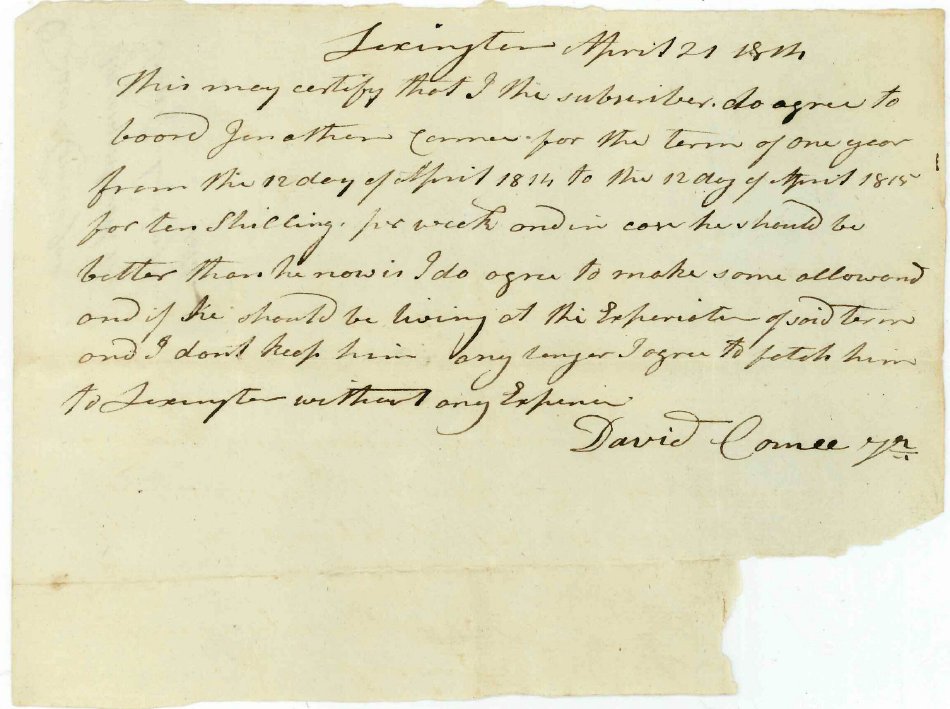 Lexington April 21 1814
This may certify that I the subscriber do agree to
boord Jonathan Comee for the term of one year
from the 12 day of April 1814 to the 12 day of April 1815
for ten Shilling per week and in case he should be
better than he now is I do agree to make some allowanc
and if he should be living at the Experiation of said term
and I dont keep him any longer I agree to fetch him
to Lexington without any Expence
David Comee Jr